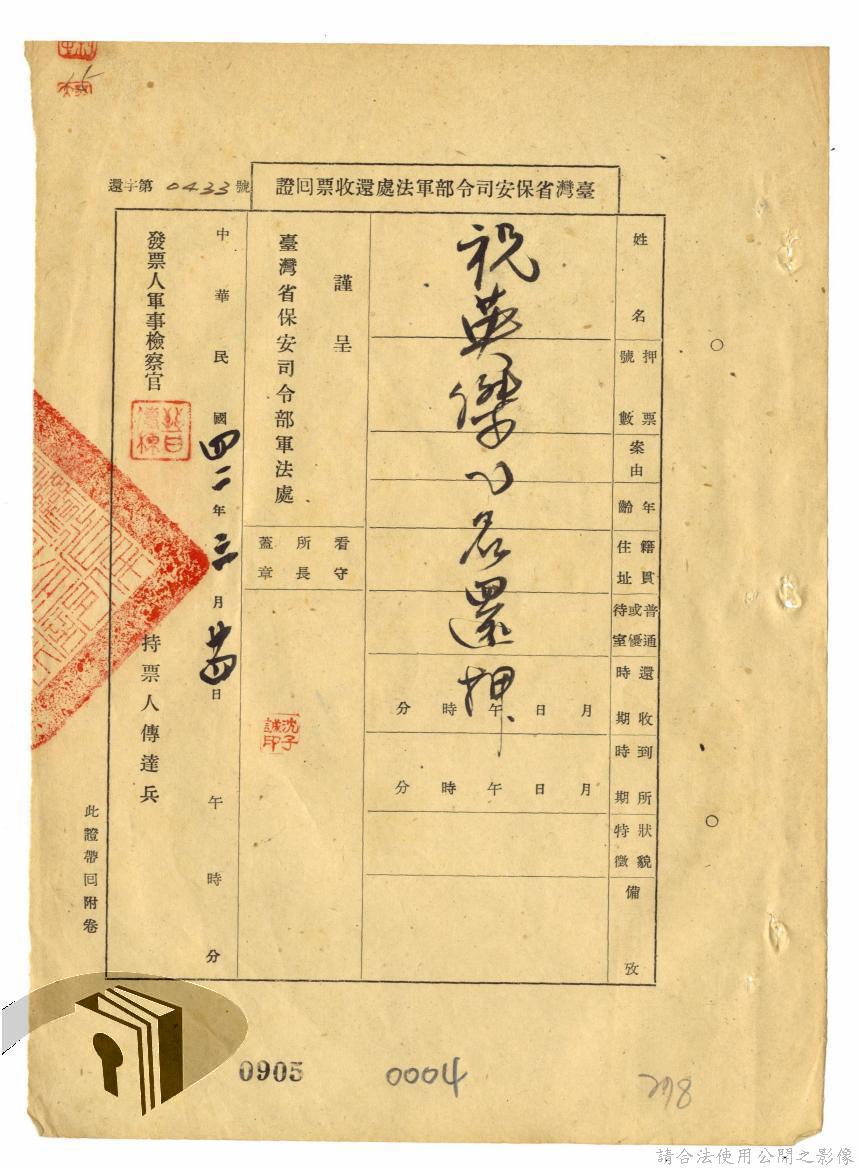 臺灣省保安司令部軍法處還收票囘證
還字第0433號
姓名
押票號數
案由
年齡
籍貫住址
普通或優待室
還收時期
到所時期
狀貌特徵
備攷
祝英傑 名還押
月 日 午 時 分
月 日 午 時 分
謹呈
臺灣省保安司令部軍法處
看守所長蓋章
沈子誠印
中華民國四二年三月廿四日 午 時 分
發票人軍事檢察官
持票人傳達兵
此證帶囘附卷
0905
0004
278
請合法使用公開之影像